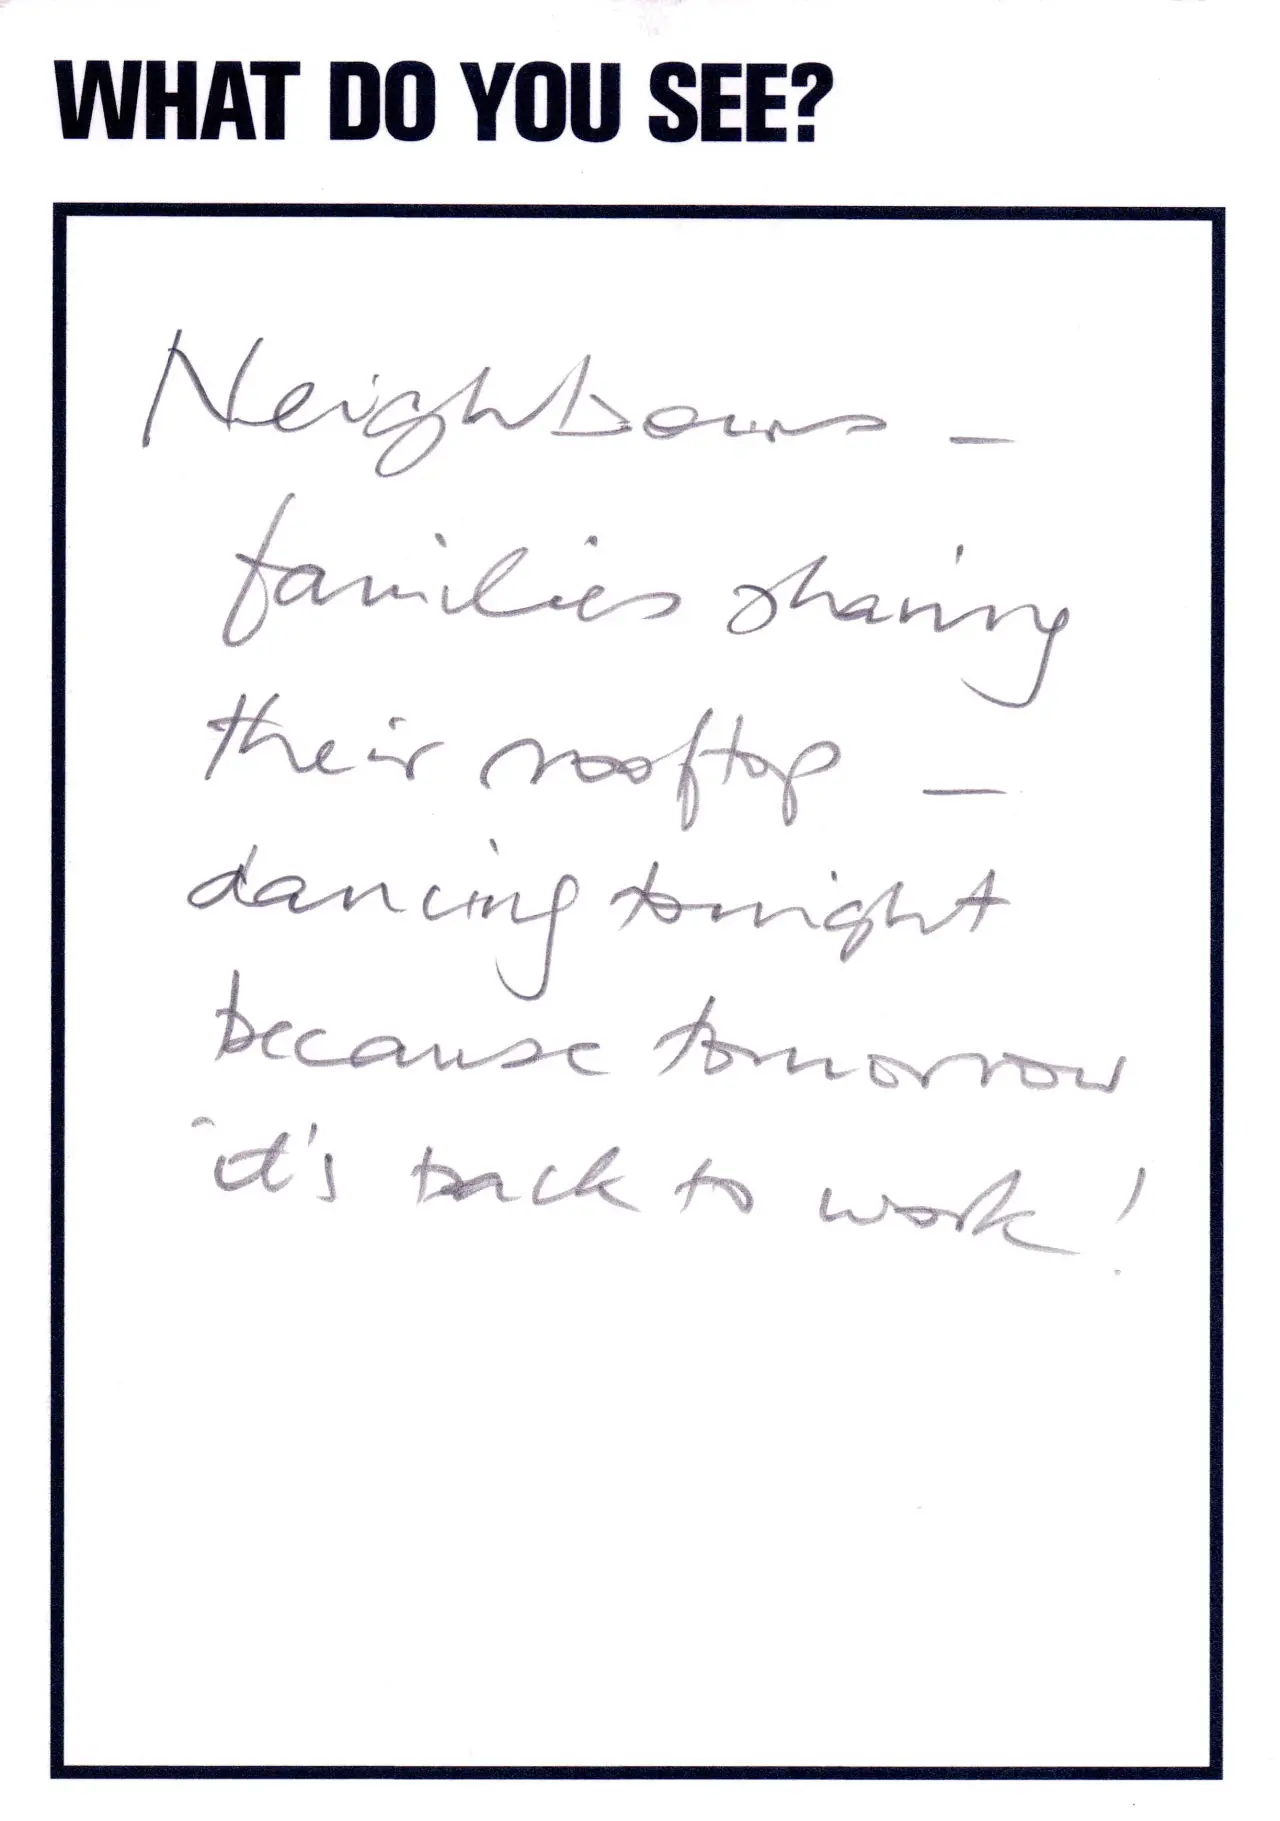 WHAT DO YOU SEE?
Neighbours –
families sharing
their rooftop –
dancing tonight
because tomorrow
it's back to work!